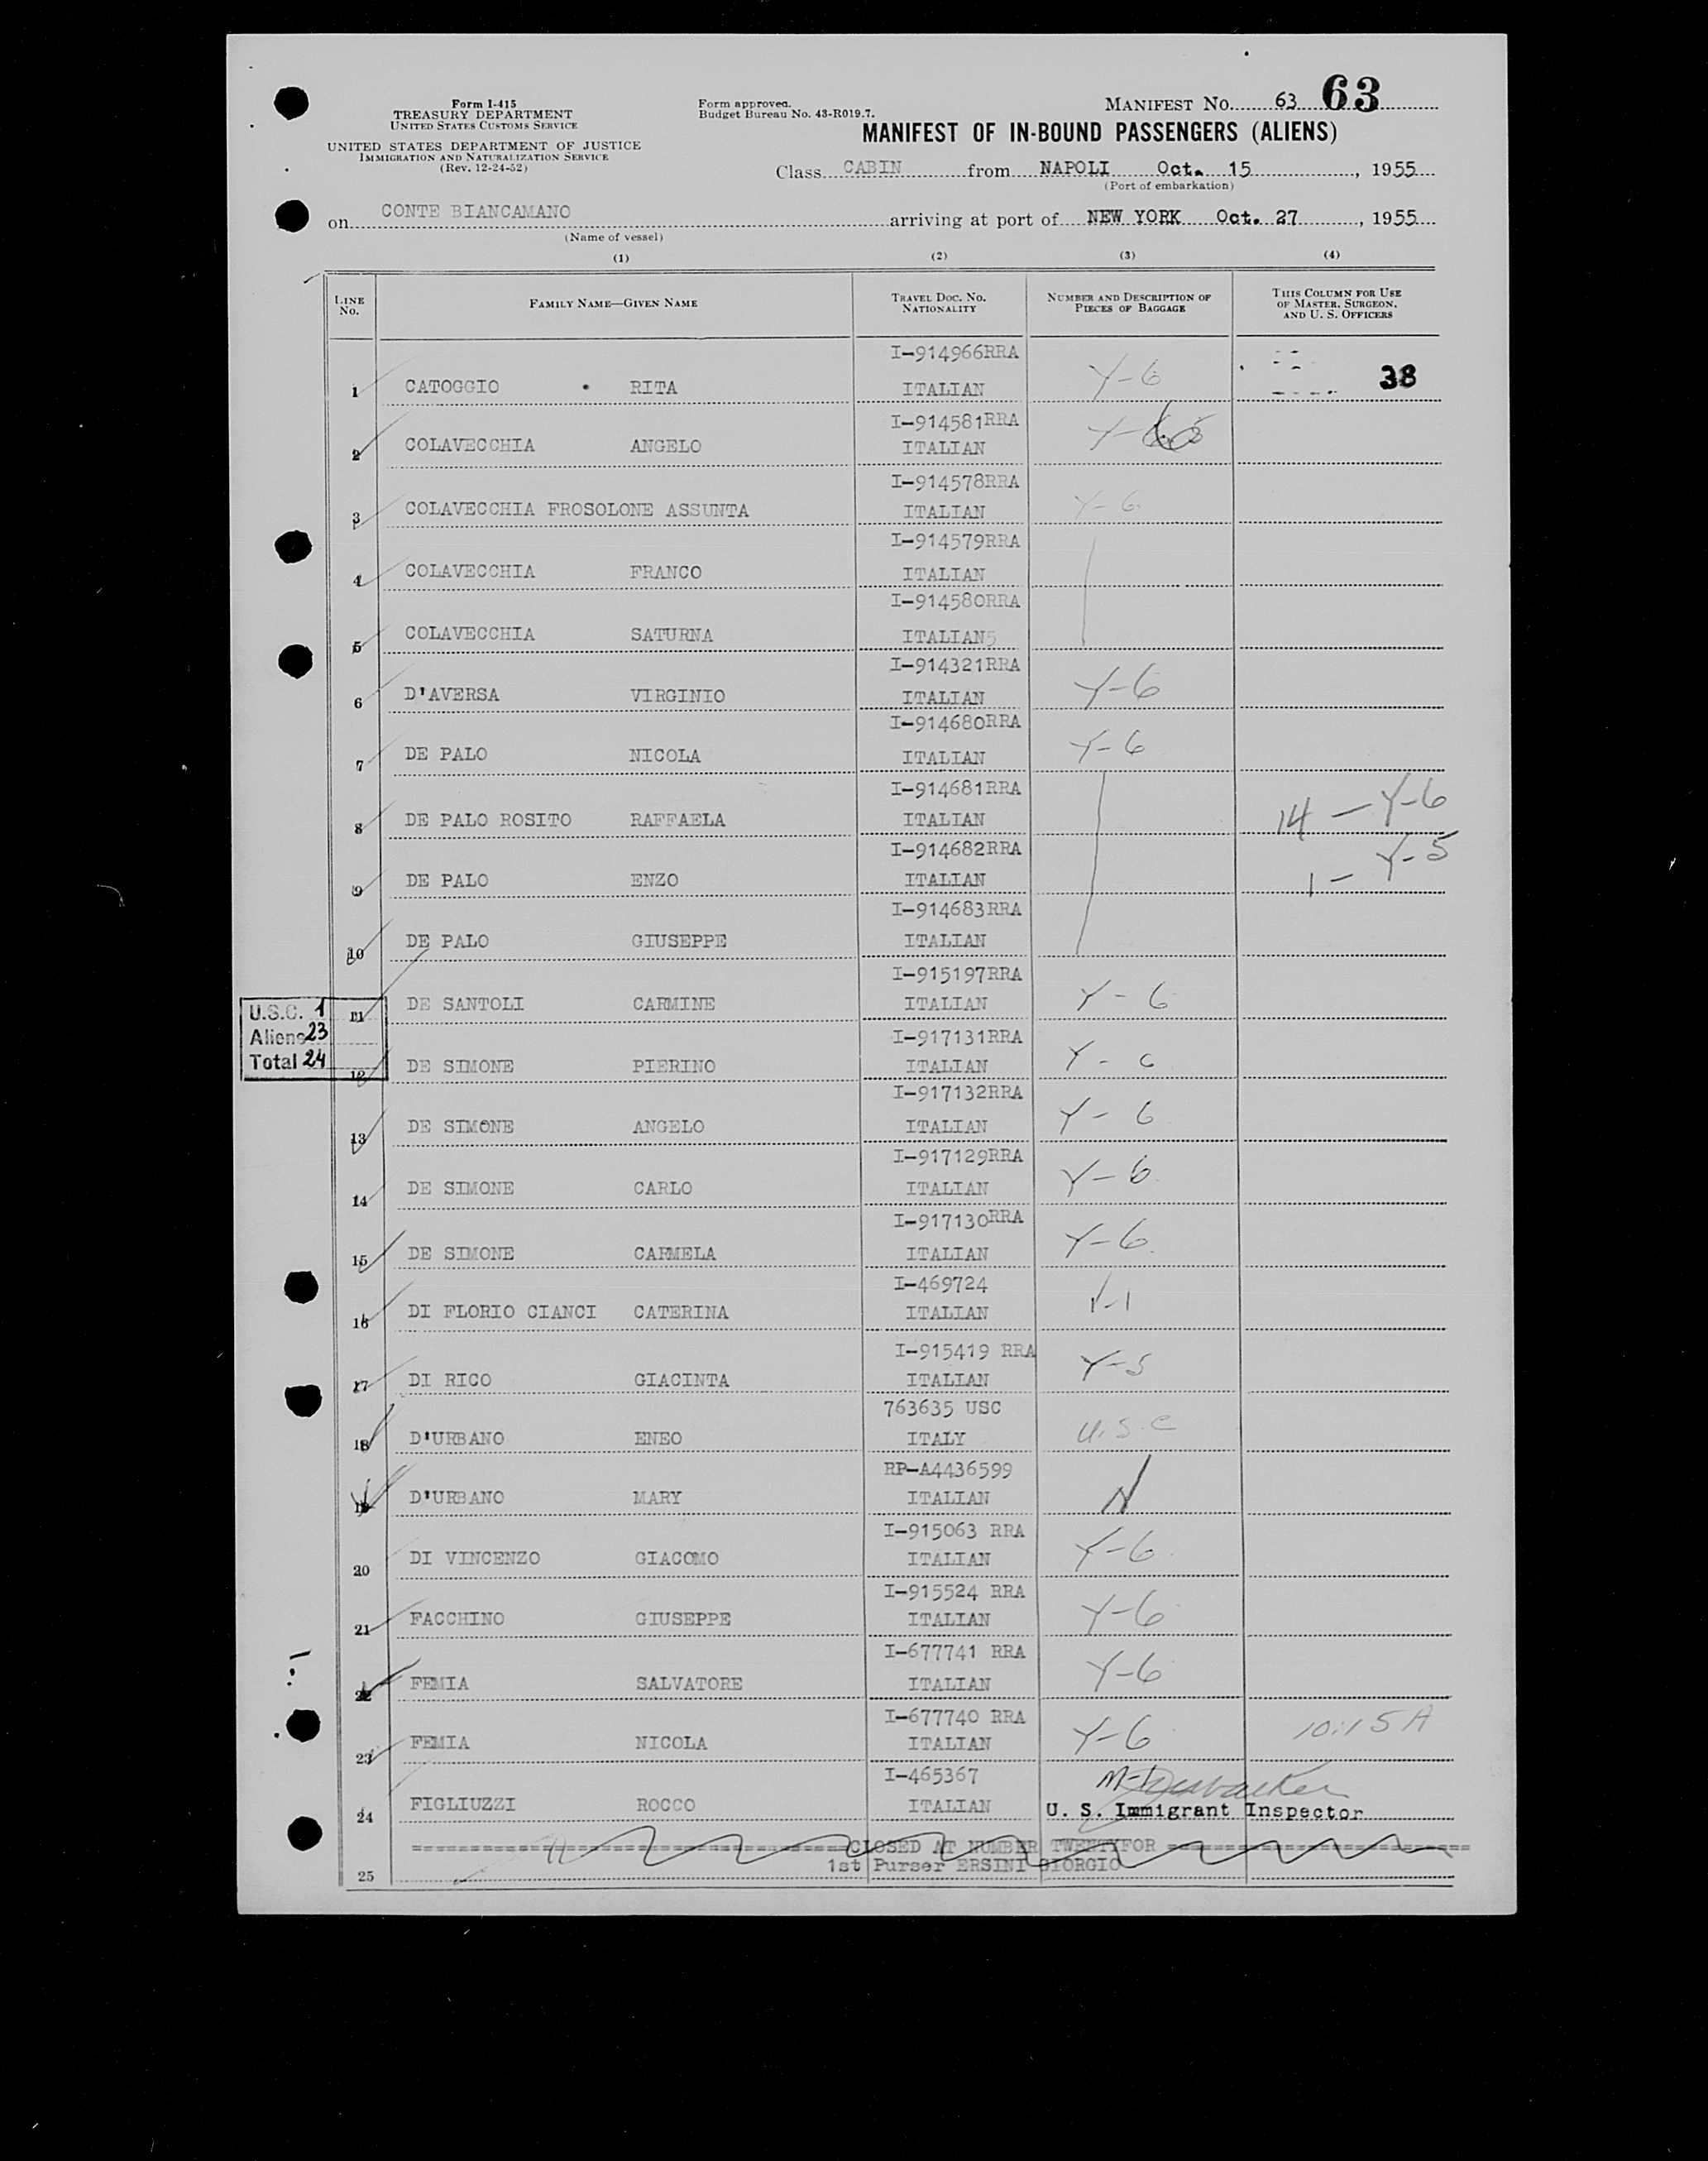 Form I-415
TREASURY DEPARTMENT
UNITED STATES CUSTOMS SERVICE
UNITED STATES DEPARTMENT OF JUSTICE
IMMIGRATION AND NATURALIZATION SERVICE
(Rev. 12-24-52)
Form approved.
Budget Bureau No. 43-R019.7.
MANIFEST NO. 63 63
MANIFEST OF IN-BOUND PASSENGERS (ALIENS)
Class CABIN from NAPOLI Oct. 15, 1955
(Port of embarkation)
on CONTE BIANCAMANO arriving at port of NEW YORK Oct. 27, 1955
(Name of vessel)
(1) (2) (3) (4)
LINE No. FAMILY NAME—GIVEN NAME TRAVEL DOC. NO. NATIONALITY NUMBER AND DESCRIPTION OF PIECES OF BAGGAGE THIS COLUMN FOR USE OF MASTER, SURGEON, AND U. S. OFFICERS
I-914966RRA
1 CATOGGIO RITA ITALIAN Y-6 38
I-914581RRA
2 COLAVECCHIA ANGELO ITALIAN
I-914578RRA
3 COLAVECCHIA FROSOLONE ASSUNTA ITALIAN Y-6
I-914579RRA
4 COLAVECCHIA FRANCO ITALIAN
I-914580RRA
5 COLAVECCHIA SATURNA ITALIAN5
I-914321RRA
6 D'AVERSA VIRGINIO ITALIAN Y-6
I-914680RRA
7 DE PALO NICOLA ITALIAN Y-6
I-914681RRA
8 DE PALO ROSITO RAFFAELA ITALIAN 14 — Y-6
I-914682RRA
9 DE PALO ENZO ITALIAN 1 — Y-5
I-914683RRA
10 DE PALO GIUSEPPE ITALIAN
I-915197RRA
11 DE SANTOLI CARMINE ITALIAN Y-6
U.S.C. 1
Aliens 23
Total 24
I-917131RRA
12 DE SIMONE PIERINO ITALIAN Y-6
I-917132RRA
13 DE SIMONE ANGELO ITALIAN Y-6
I-917129RRA
14 DE SIMONE CARLO ITALIAN Y-6
I-917130RRA
15 DE SIMONE CARMELA ITALIAN Y-6
I-469724
16 DI FLORIO CIANCI CATERINA ITALIAN Y-1
I-915419 RRA
17 DI RICO GIACINTA ITALIAN Y-5
763635 USC
18 D'URBANO ENEO ITALY U.S.C
RP-A4436599
19 D'URBANO MARY ITALIAN
I-915063 RRA
20 DI VINCENZO GIACOMO ITALIAN Y-6
I-915524 RRA
21 FACCHINO GIUSEPPE ITALIAN Y-6
I-677741 RRA
22 FEMIA SALVATORE ITALIAN Y-6
I-677740 RRA
23 FEMIA NICOLA ITALIAN Y-6 10:15 A
I-465367
24 FIGLIUZZI ROCCO ITALIAN U. S. Immigrant Inspector
CLOSED AT NUMBER TWENTYFOR
25 1st Purser ERSINI GIORGIO